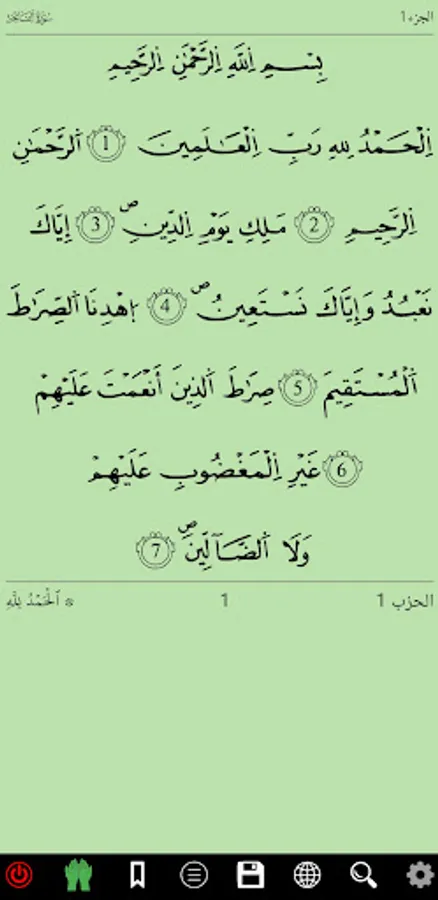 الجزء 1 سورة الفاتحة
بِسْمِ اِ۬للَّهِ اِ۬لرَّحْمَٰنِ اِ۬لرَّحِيمِ
اِ۬لْحَمْدُ لِلهِ رَبِّ اِ۬لْعَٰلَمِينَ 1 اَ۬لرَّحْمَٰنِ
اِ۬لرَّحِيمِ 2 مَلِكِ يَوْمِ اِ۬لدِّينِۖ 3 إِيَّاكَ
نَعْبُدُ وَإِيَّاكَ نَسْتَعِينُۖ 4 اِ۪هْدِنَا اَ۬لصِّرَٰطَ
اَ۬لْمُسْتَقِيمَ 5 صِرَٰطَ اَ۬لذِينَ أَنْعَمْتَ عَلَيْهِمْ
6 غَيْرِ اِ۬لْمَغْضُوبِ عَلَيْهِمْ
وَلَا اَ۬لضَّآلِّينَۖ 7
الحزب 1 1 ۞ اَ۬لْحَمْدُ لِلَّهِ